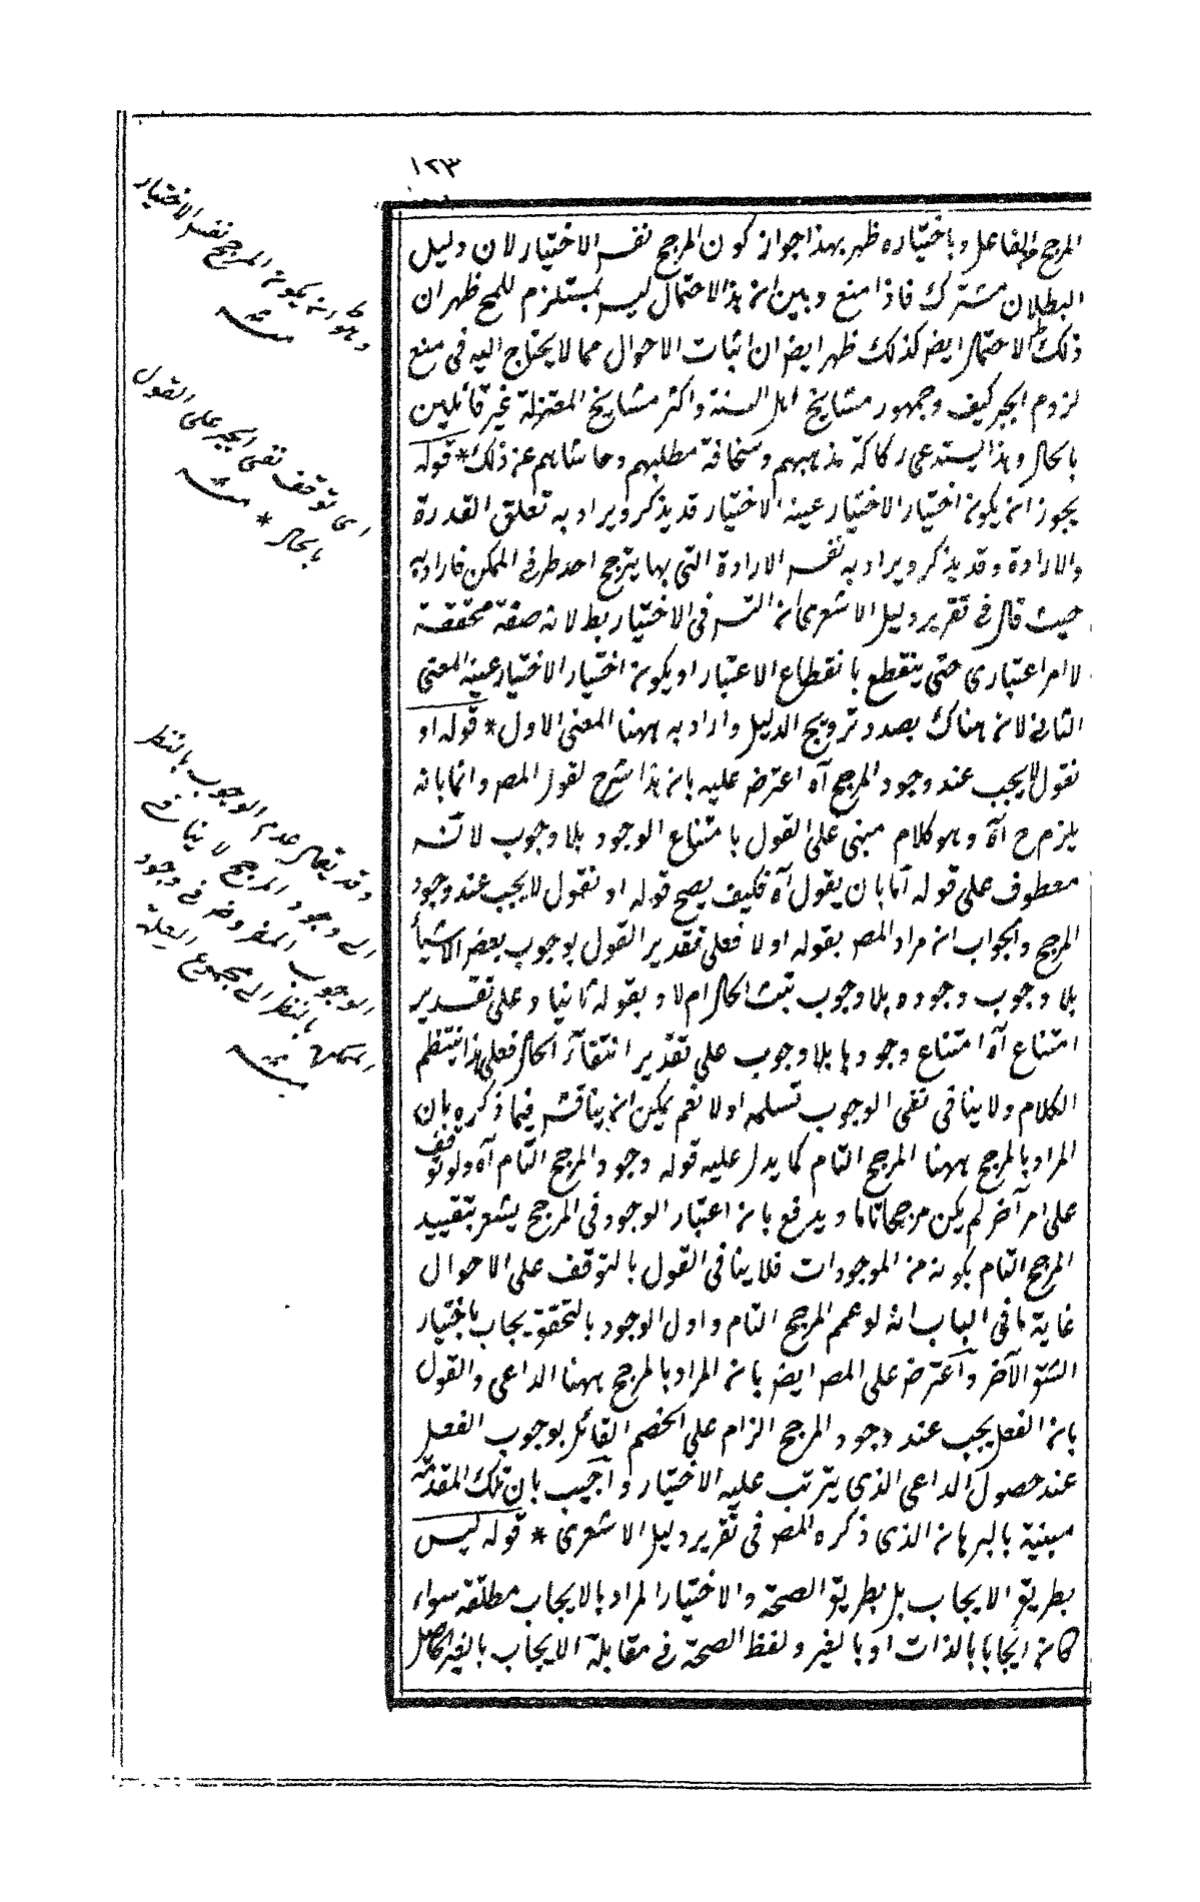 ١٢٣
المرجح والفاعل وباختياره ظهر بهذا جواز كون المرجح نفس الاختيار لان دليل
البطلان مشترك فاذا منع وبين ان هذا الاحتمال ليس بمستلزم للمح ظهر ان
ذلك الاحتمال ايض كذلك ظهر ايض ان اثبات الاحوال مما لا يحتاج اليه فى منع
لزوم الجبر كيف وجمهور مشايخ اهل السنة واكثر مشايخ المعتزلة غير قائلين
بالحال وهذا يستدعى ركاكة مذهبهم وسخافة مطلبهم وحاشاهم عن ذلك * قوله
يجوز ان يكون اختيار الاختيار عين الاختيار قد يذكر ويراد به تعلق القدرة
والارادة وقد يذكر ويراد به نفس الارادة التى بها يترجح احد طرفى الممكن فاراد به
حيث قال فى تقرير دليل الاشعرى ان التس فى الاختيار بط لانه صفة محققة
لا امر اعتبارى حتى ينقطع بانقطاع الاعتبار او يكون اختيار الاختيار عينه المعنى
الثانى لانه هناك بصدد ترويج الدليل واراد به ههنا المعنى الاول * قوله او
نقول لا يجب عند وجود المرجح آه اعترض عليه بان هذا شرح لقول المص وانما بانه
يلزم ح آه وهو كلام مبنى على القول بامتناع الوجود بلا وجوب لانه
معطوف على قوله اما بان يقول آه فكيف يصح قوله او نقول لا يجب عند وجود
المرجح والجواب ان مراد المص بقوله اولا فعلى تقدير القول بوجوب بعض الاشيأ
بلا وجوب وجوده بلا وجوب ثبت الحال ام لا وبقوله ثانيا وعلى تقدير
امتناع آه امتناع وجودها بلا وجوب على تقدير انتفاء الحال فعلى هذا ينتظم
الكلام ولا ينافى نفى الوجوب تسلمه اولا نعم يمكن ان يناقش فيما ذكره بان
المراد بالمرجح ههنا المرجح التام كما يدل عليه قوله وجود المرجح التام آه ولو توقف
على امر آخر لم يكن مرجحا تاما ويدفع بان اعتبار الوجود فى المرجح يشعر بتقييد
المرجح التام بكونه من الموجودات فلا ينافى القول بالتوقف على الاحوال
غاية ما فى الباب انه لو عمم المرجح التام واول الوجود بالتحقق يجاب باختيار
الشق الآخر واعترض على المص ايض بان المراد بالمرجح ههنا الداعى والقول
بان الفعل يجب عند وجود المرجح الزام على الخصم القائل بوجوب الفعل
عند حصول الداعى الذى يترتب عليه الاختيار واجيب بان تلك المقدمة
مبنية بالبرهان الذى ذكره المص فى تقرير دليل الاشعرى * قوله ليس
بطريق الايجاب بل بطريق الصحة والاختيار المراد بالايجاب مطلقه سواء
كان ايجابا بالذات او بالغير ولفظ الصحة فى مقابلة الايجاب بالغير الحاصل
وهو ان يكون المرجح نفس الاختيار
منه
اى توقف نفى الجبر على القول
بالحال * منه
وقد يقال عدم الوجوب بالنظر
الى وجود المرجح لا ينافى
الوجوب المفروض فى وجود
بالنظر الى مجموع العلة
منه